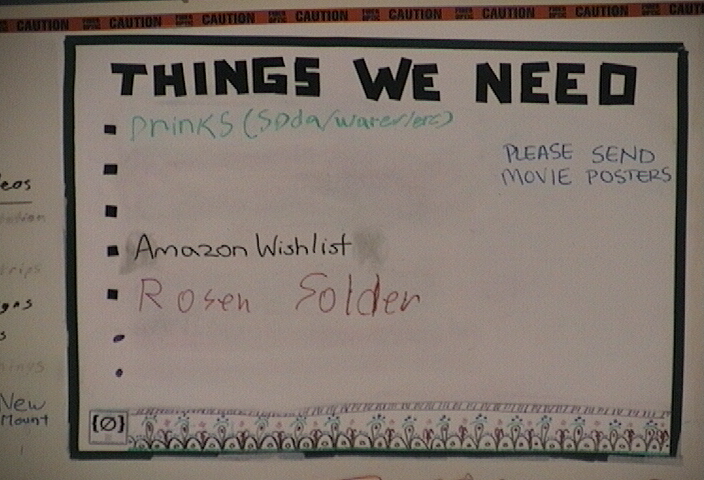 CAUTION CAUTION CAUTION CAUTION CAUTION CAUTION CAUTION CAUTION
THINGS WE NEED
Drinks (Soda/water/etc)
PLEASE SEND
MOVIE POSTERS
Amazon Wishlist
Rosen Solder
{Ø}
eos
rips
gns
s
New
Mount